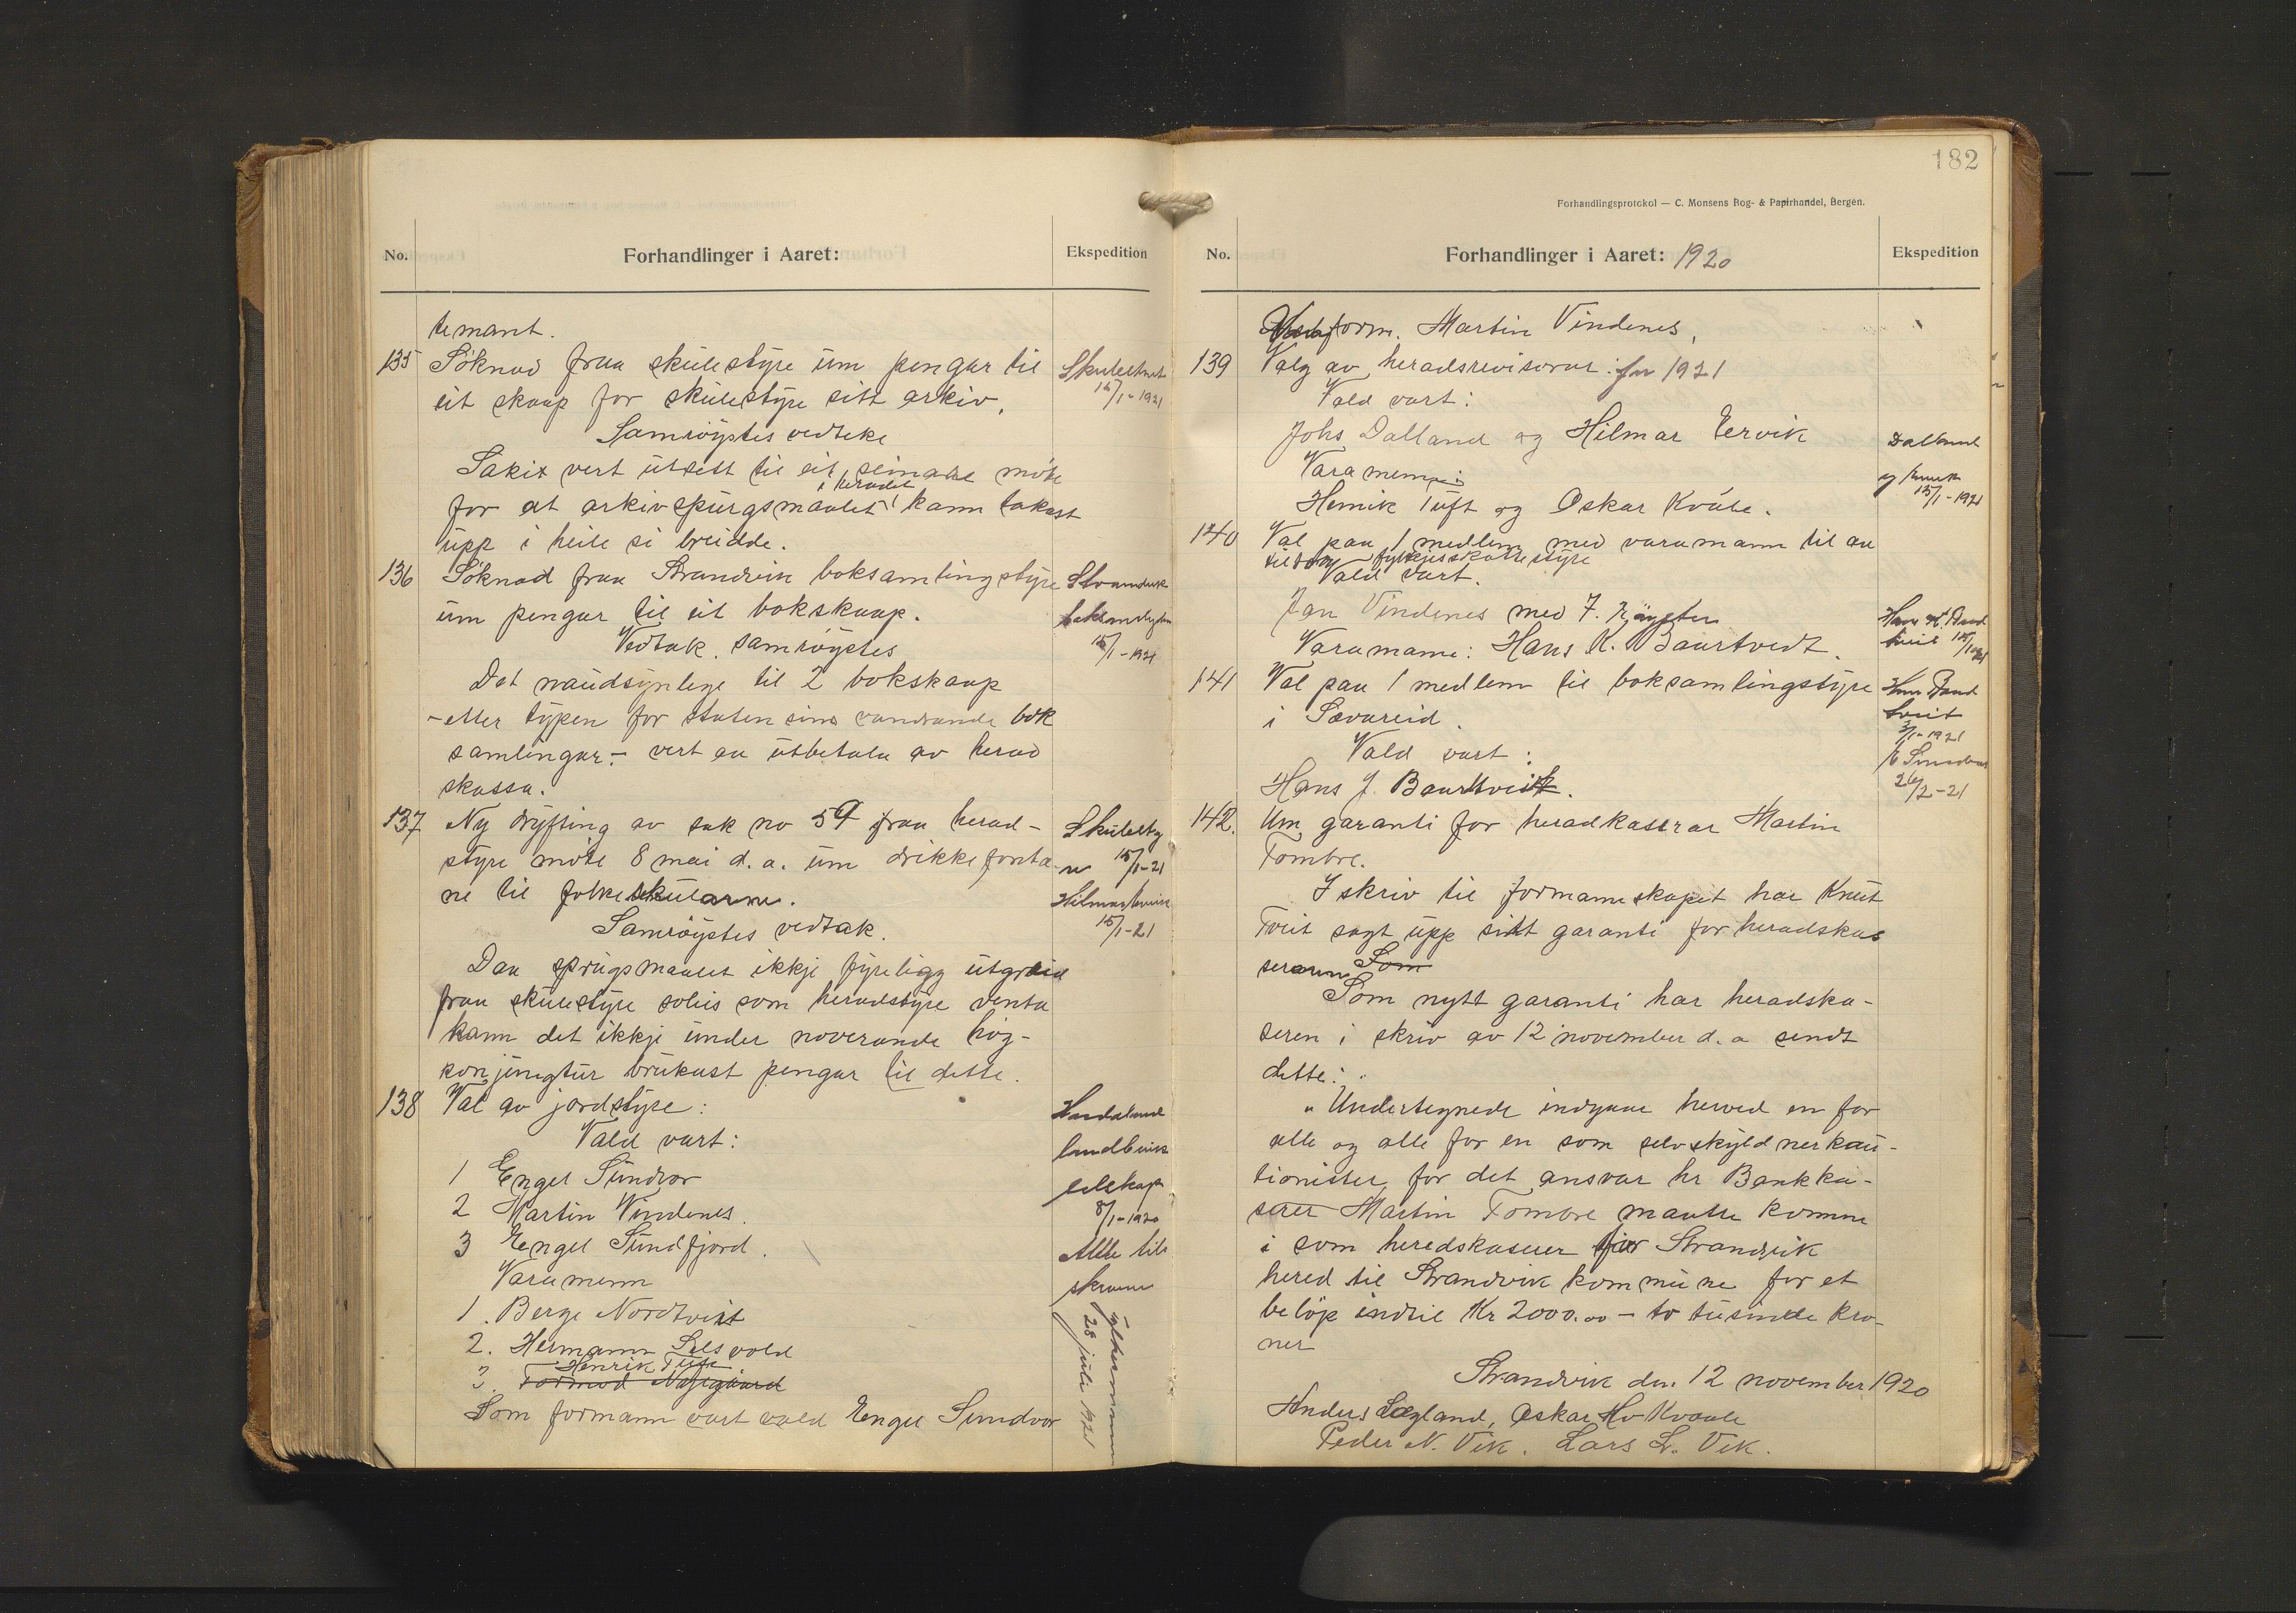 No.
Forhandlinger i Aaret:
Ekspedition
temant.
135 Söknad fraa skulestyre um pengar til
eit skaap for skulestyre sitt arkiv.
Samröystes vedteke
Saki vert utsett til eit seinare möte
i heradet
for at arkivspurgsmaalet kann takast
upp i heile si breidde.
15/1-1921
136 Söknad fraa Strandvik boksamlingstyre
um pengar til eit bokskaap.
Vedtak. samröystes
Det naudsynlege til 2 bokskaap
- etter typen for staten sine vandrande bok
samlingar - vert aa utbetala av herad
skassa.
Strandvik
15/1-1921
137 Ny dryfting av sak no 59 fraa herad-
styre möte 8 mai d.a. um drikkefontæ-
ne til folkeskularne.
Samröystes vedtak.
Daa sprugsmaalet ikkje fyreligg utgreid
fraa skulestyre soleis som heradstyre venta
kann det ikkje under noverande høg-
konjungtur brukast pengar til dette.
15/1-21
Hilmar Ervik
15/1-21
138 Val av jordstyre:
Vald vart:
1 Engel Sundvor
2 Martin Vindenes.
3 Engel Sundfjord.
Varamenn
1. Berge Nordtveit
2. Hermann Selsvold
Henrik Tuft
3. Tormod
Som formann vart vald Engel Sundvor
Hordaland
landbruks
selskap
8/1-1920
Alle til
skrivne
fylkesmannen
28 juli 1921
182
Forhandlingsprotokol — C. Monsens Bog- & Papirhandel, Bergen.
No.
Forhandlinger i Aaret: 1920
Ekspedition
Varaform. Martin Vindenes.
139 Valg av heradsrevisorar for 1921
Vald vart:
Johs Dalland og Hilmar Ervik
Varamenn:
Henrik Tuft og Oskar Kvåle.
Dalland
og Ervik
15/1-1921
140 Val paa 1 medlem med varamann til aa
fylkjesskattestyre
Vald vart.
Jan Vindenes med 7. röyster
Varamann: Hans K. Baurtvedt.
141 Val paa 1 medlem til boksamlingstyre
i Sævareid.
Vald vart:
Hans J. Baurtveit.
Hans Baud
tveit
3/1-1921
26/2-21
142. Um garanti for heradkasserar Martin
Tombre.
I skriv til formannskapet har Knut
Tveit sagt upp sitt garanti for heradskas
seraren Som
Som nytt garanti har heradska-
seren i skriv av 12 november d.a sendt
dette:
"Undertegnede indgaar herved en for
alle og alle for en som selvskyldnerkau-
tionister for det ansvar hr Bankka-
serer Martin Tombre maatte komme
i som heredskaserer for Strandvik
hered til Strandvik kommune for et
beløp indtil Kr 2000.00 - to tusinde kro-
ner
Strandvik den 12 november 1920
Anders Lægland, Oskar Hv Kvaale
Peder N. Vik. Lars L. Vik.